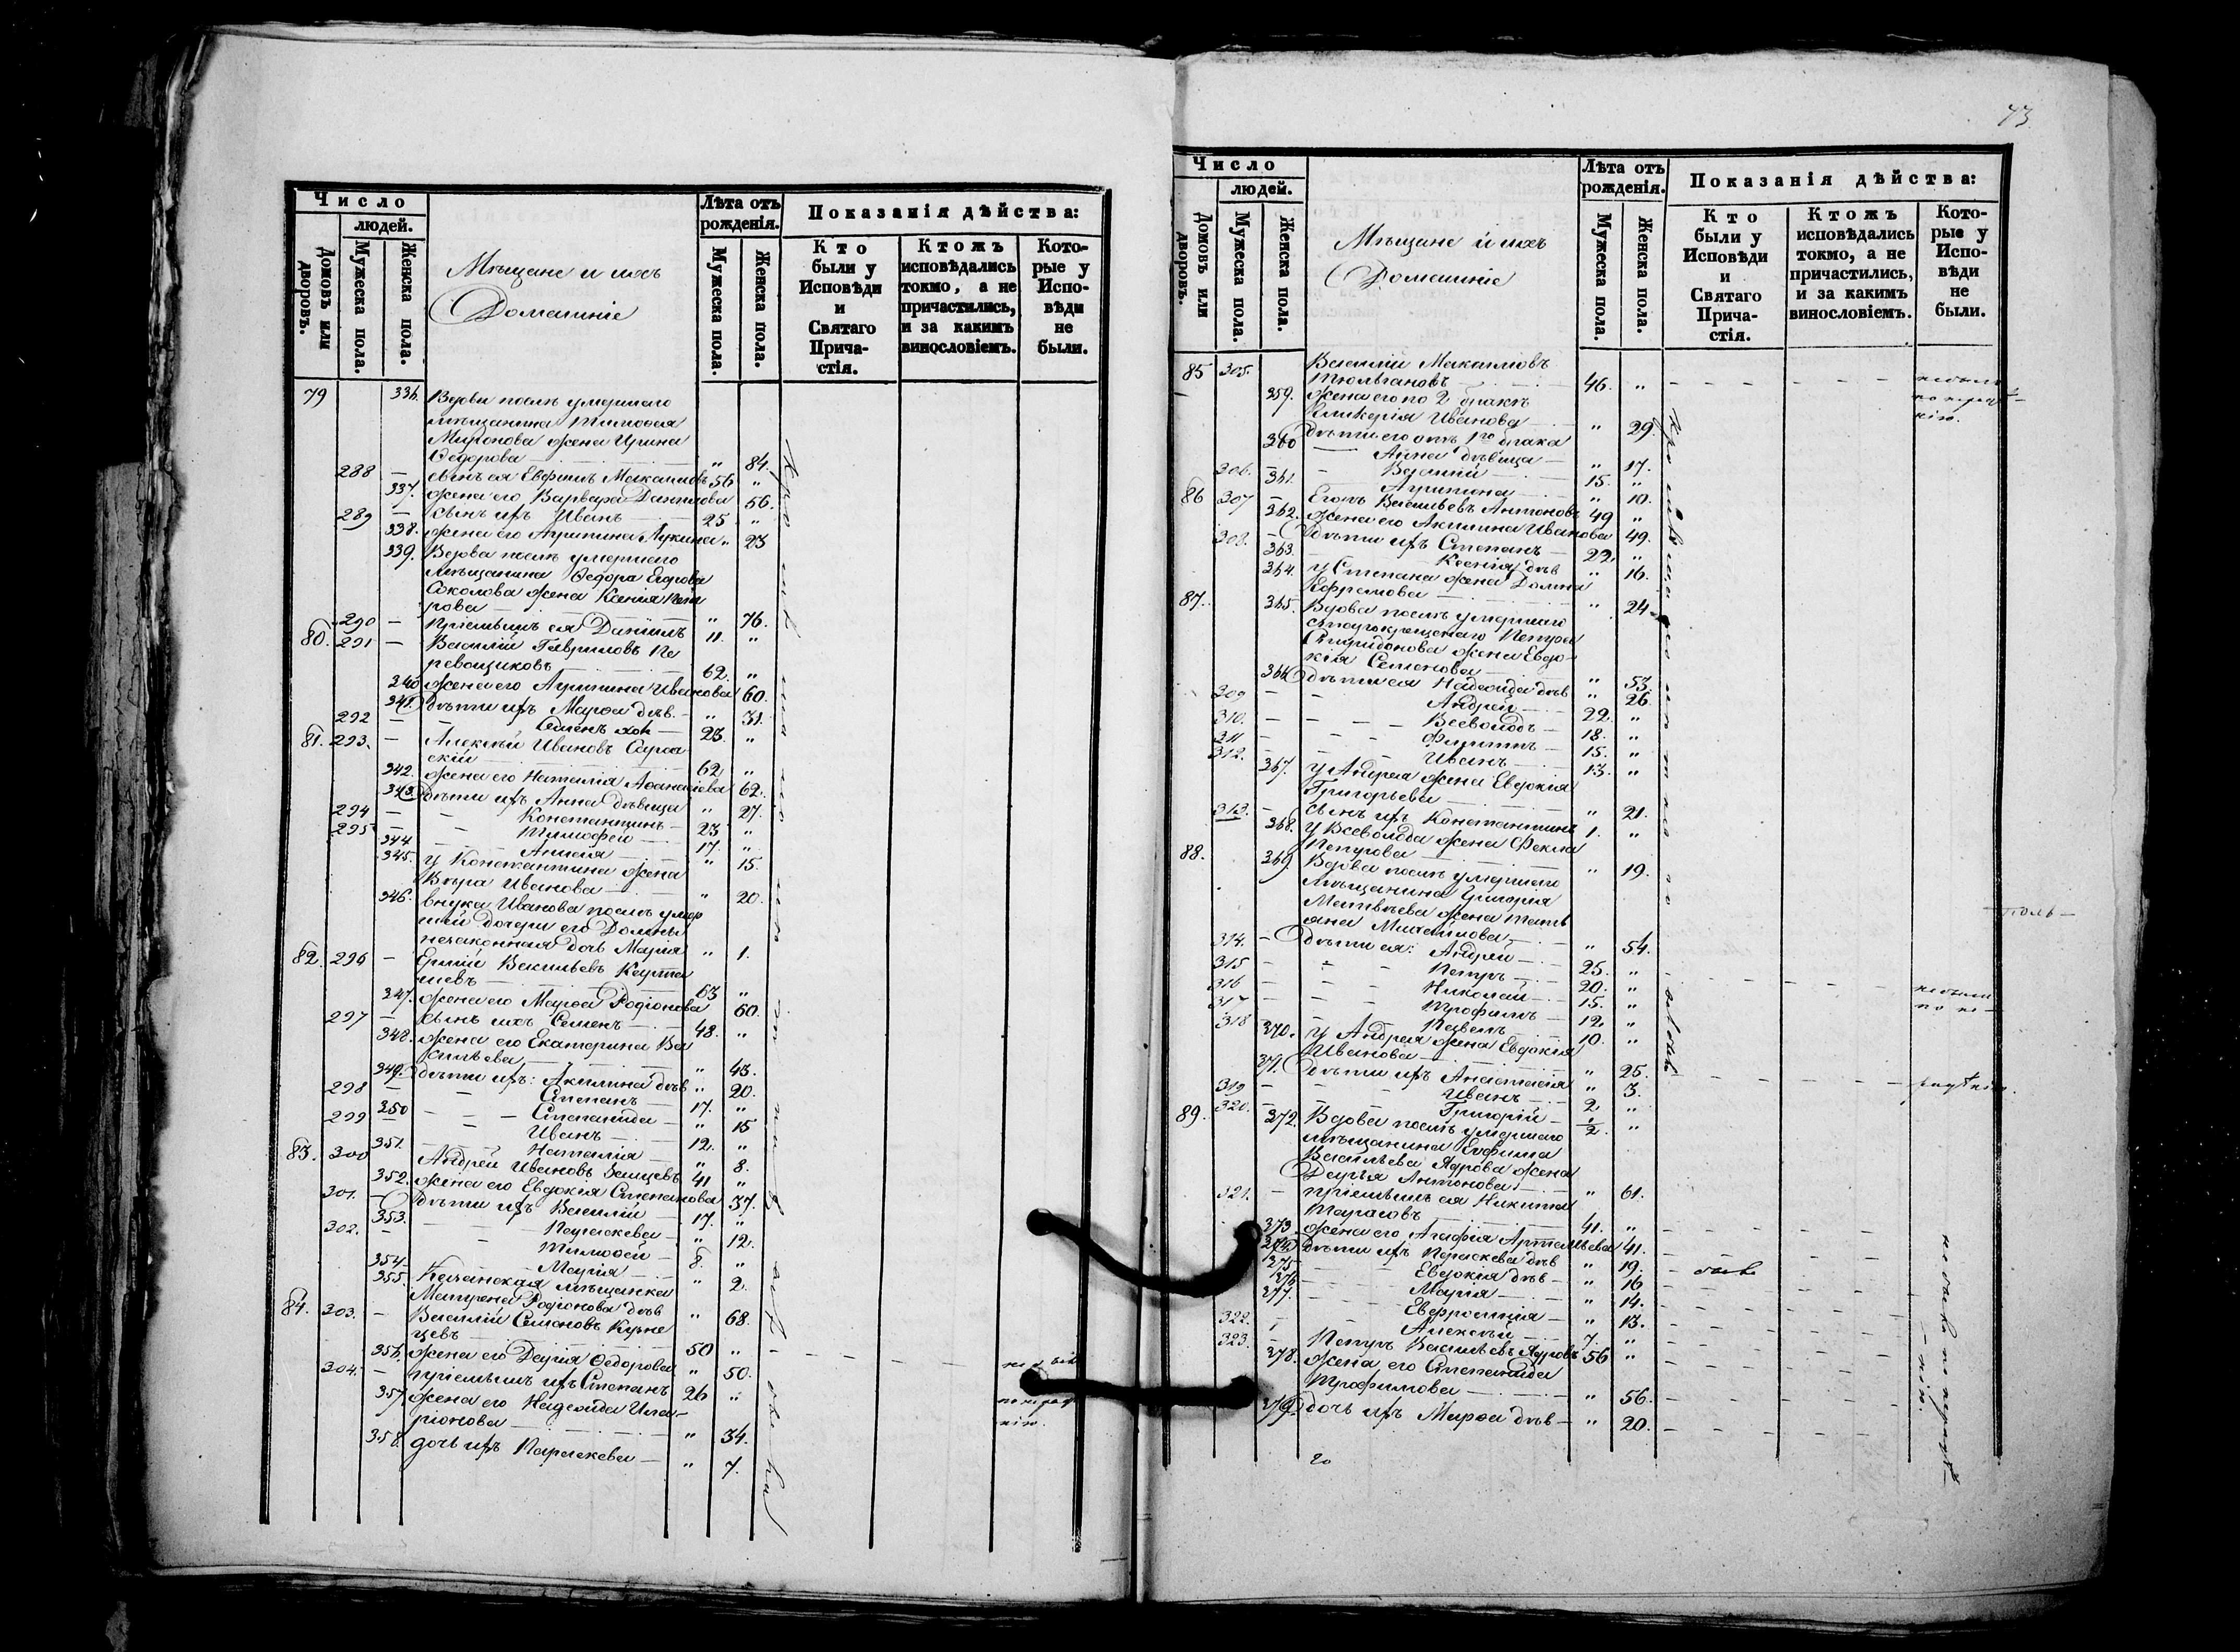 Число
людей.
Домовъ или дворовъ.
Мужеска пола.
Женска пола.
Мѣщане и ихъ
Домашніе
Лѣта отъ рожденія.
Мужеска пола.
Женска пола.
Показанія дѣйства:
Кто были у Исповѣди и Святаго Причастія.
Ктожъ исповѣдались токмо, а не причастились, и за какимъ винословіемъ.
Которые у Исповѣди не были.
79 336. Вдова послѣ умершаго
мѣщанина Тимофея
Миронова жена Ирина
Ѳедорова — " 84.
288 — сынъ ея Евфимъ Максимовъ 56 "
337. жена его Варвара Данилова 56.
289 — сынъ ихъ Иванъ — 25 "
338. жена его Агрипина Лукина " 23
339. Вдова послѣ умершаго
мѣщанина Ѳедора Егорова
Соколова жена Ксенія Пет
рова — " 76.
290 — пріемышъ ея Даніилъ 11. "
80. 291 — Василій Гавриловъ Пе
ревощиковъ — 62. "
340 жена его Агрипина Иванова 60.
341. дѣти ихъ Марѳа дѣв. — " 31.
292 — Семенъ хол — 23. "
81. 293. — Алексѣй Ивановъ
скій — 62 "
342. жена его Наталія Аѳанасьева 62.
343. дѣти ихъ Анна дѣвица " 27.
294 — Константинъ — 23 "
295 — Тимофей — 17. "
344 — " 15.
345. у Константина жена
Вѣра Иванова — " 20.
346. внука Иванова послѣ умер
шей дочери его Домны
незаконная дочь Марія " 1.
82. 296 — Ермій Васильевъ
шевъ — 63 "
347. жена его Марѳа Родіонова 60.
297 — сынъ ихъ Семенъ — 48. "
348. жена его Екатерина Ва
сильева — " 43.
349. дѣти ихъ: Акилина дѣв " 20.
298 — Степанъ — 17. "
350 — Степанида — " 15
299 — Иванъ — 12. "
351. Наталія — " 8.
83. 300 Андрей Ивановъ Зайцевъ 41 "
352. жена его Евдокія Степанова 37.
301. — дѣти ихъ Василій — 17. "
353. Параскева — " 12.
302. — Тимофей — 8. "
354 — Марія — " 2.
355. Казанская мѣщанка
Матрена Родіонова дѣв " 68.
84. 303. — Василій Семеновъ Кузне
цевъ — 50 "
356. жена его Дарія Ѳедорова " 50.
304. — пріемышъ ихъ Степанъ 26 "
357 жена его Надежда Ила-
ріонова — " 34.
358. дочь ихъ Параскева — " 7.
73
Число
людей.
Домовъ или дворовъ.
Мужеска пола.
Женска пола.
Мѣщане и ихъ
Домашніе
Лѣта отъ рожденія.
Мужеска пола.
Женска пола.
Показанія дѣйства:
Кто были у Исповѣди и Святаго Причастія.
Ктожъ исповѣдались токмо, а не причастились, и за какимъ винословіемъ.
Которые у Исповѣди не были.
85 305. Василій Максимовъ
Тюльгановъ — 46. "
359. жена его по 2 бракѣ
Гликерія Иванова — " 29.
дѣти его отъ 1го брака
360 — Анна дѣвица — " 17.
306. — Василій — 15. "
361. Агрипина — " 10.
86 307 — Егоръ Васильевъ Антоновъ 49 "
362. жена его Акилина Иванова 49.
308. — дѣти ихъ Степанъ — 22. "
363. Ксенія дѣв " 16.
364. у Степана жена Домна
Ефремова — " 24
87. 365. Вдова послѣ умершаго
старокрещенаго Петра
Спиридонова жена Евдо-
кія Семенова — " 53.
366 дѣти ея Надежда дѣв " 26.
309 — Андрей — 22. "
310. — Всеволодъ — 18. "
311 — Филиппъ — 15. "
312. — Иванъ — 13. "
367. у Андрея жена Евдокія
Григорьева — " 21.
313. — сынъ ихъ Константинъ 1. "
368. у Всеволода жена Фекла
Петрова — " 19.
88. 369. Вдова послѣ умершаго
мѣщанина Григорія
Матвѣева жена Тать
яна Михайлова — " 54.
314. — дѣти ея: Андрей — 25. "
315 — Петръ — 20. "
316 — Николай — 15. "
317 — Трофимъ — 12. "
318 Павелъ — 10. "
370. у Андрея жена Евдокія
Иванова — " 25.
371. дѣти ихъ Анастасія " 3.
319 — Иванъ — 2 "
320. — Григорій — 1/2. "
89. 372. Вдова послѣ умершаго
мѣщанина Евфима
Васильева Ядрова жена
Дарья Антонова — " 61.
321. — пріемышъ ея Никита
Тарасовъ — 41. "
373. жена его Агафія Артемьева 41.
374 дѣти ихъ Параскева дѣв " 19.
375 Евдокія дѣв — " 16
376 Марія — " 14.
377. Евфросинія — " 13.
322. — Алексѣй — 7. "
323. — Петръ Васильевъ Ядровъ 56 "
378. жена его Степанида
Трофимова — " 56.
379 дочь ихъ Марѳа дѣв — " 20.